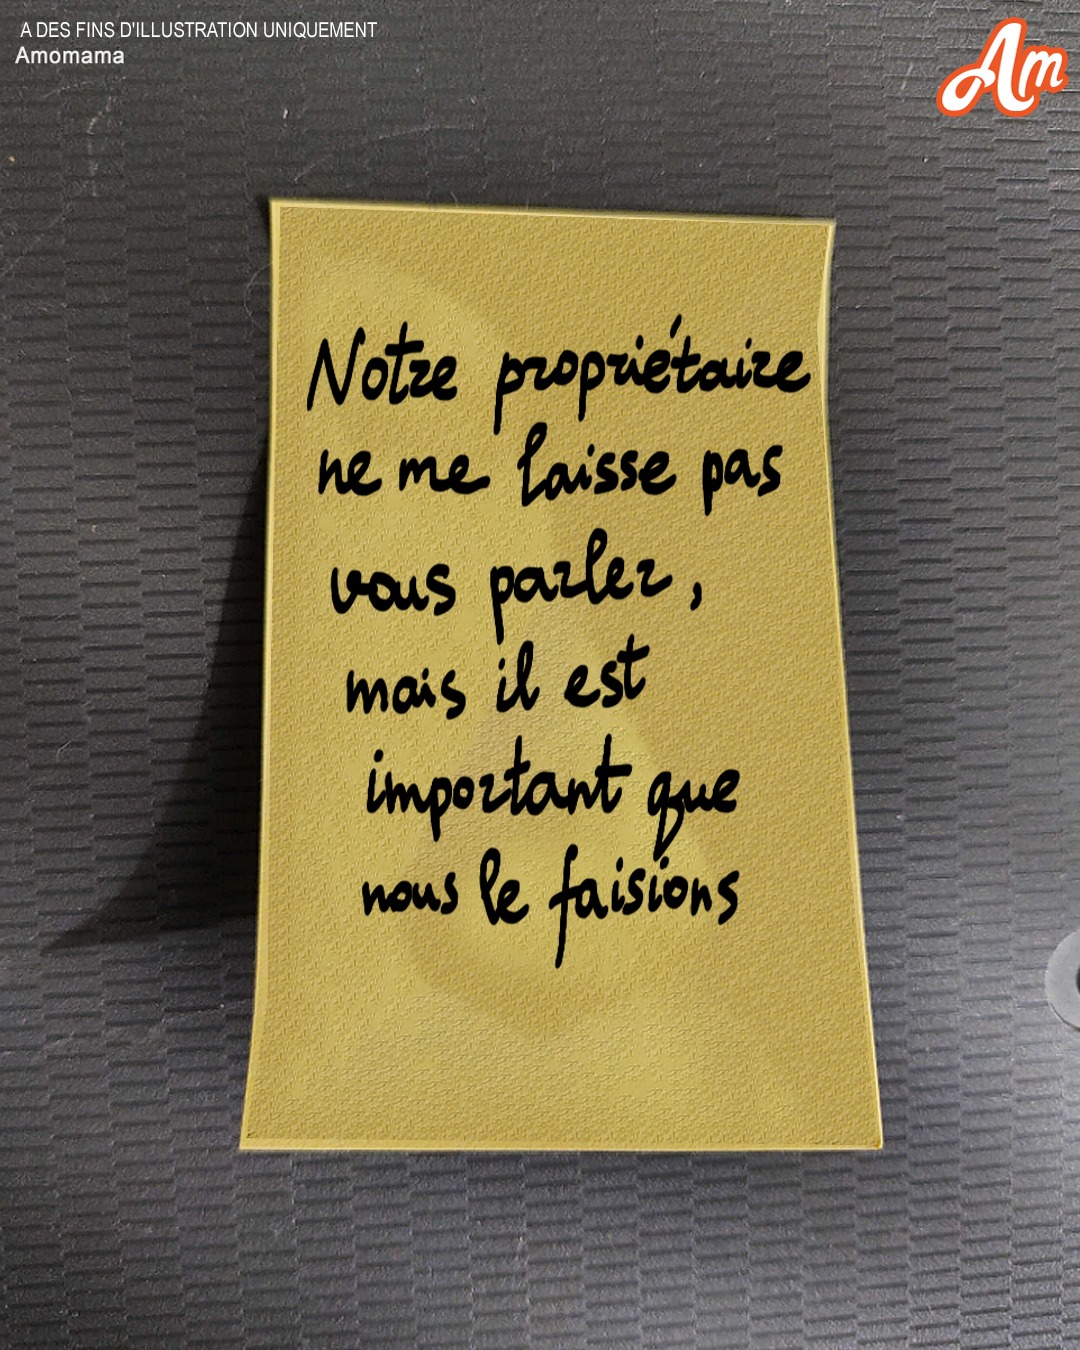 A DES FINS D'ILLUSTRATION UNIQUEMENT
Amomama
Am
Notre propriétaire
ne me laisse pas
vous parler,
mais il est
important que
nous le faisions